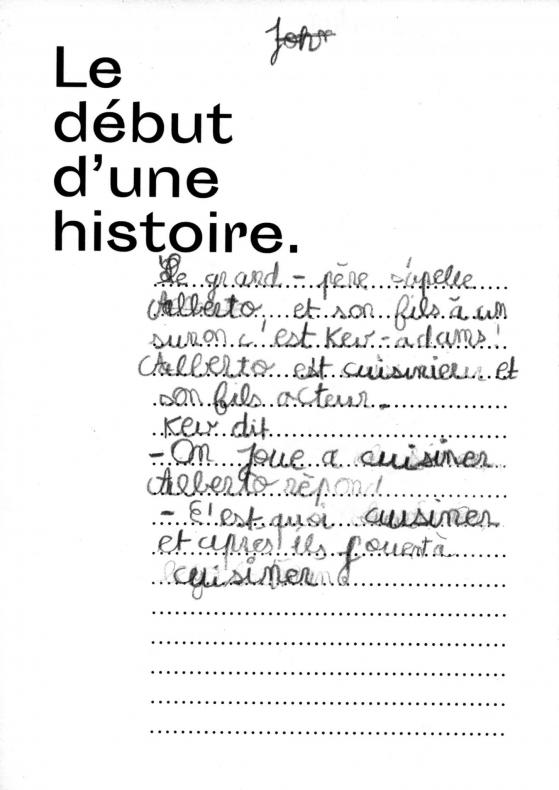 John
Le
début
d'une
histoire.
Le grand - père s'apelle
Alberto et son fils à un
surnon c'est Kev-adams !
Alberto est cuisinier et
son fils acteur.
Kev dit
- On joue a cuisiner
Alberto rèpond
- C'est quoi cuisiner
et après ils jouent à
cuisiner